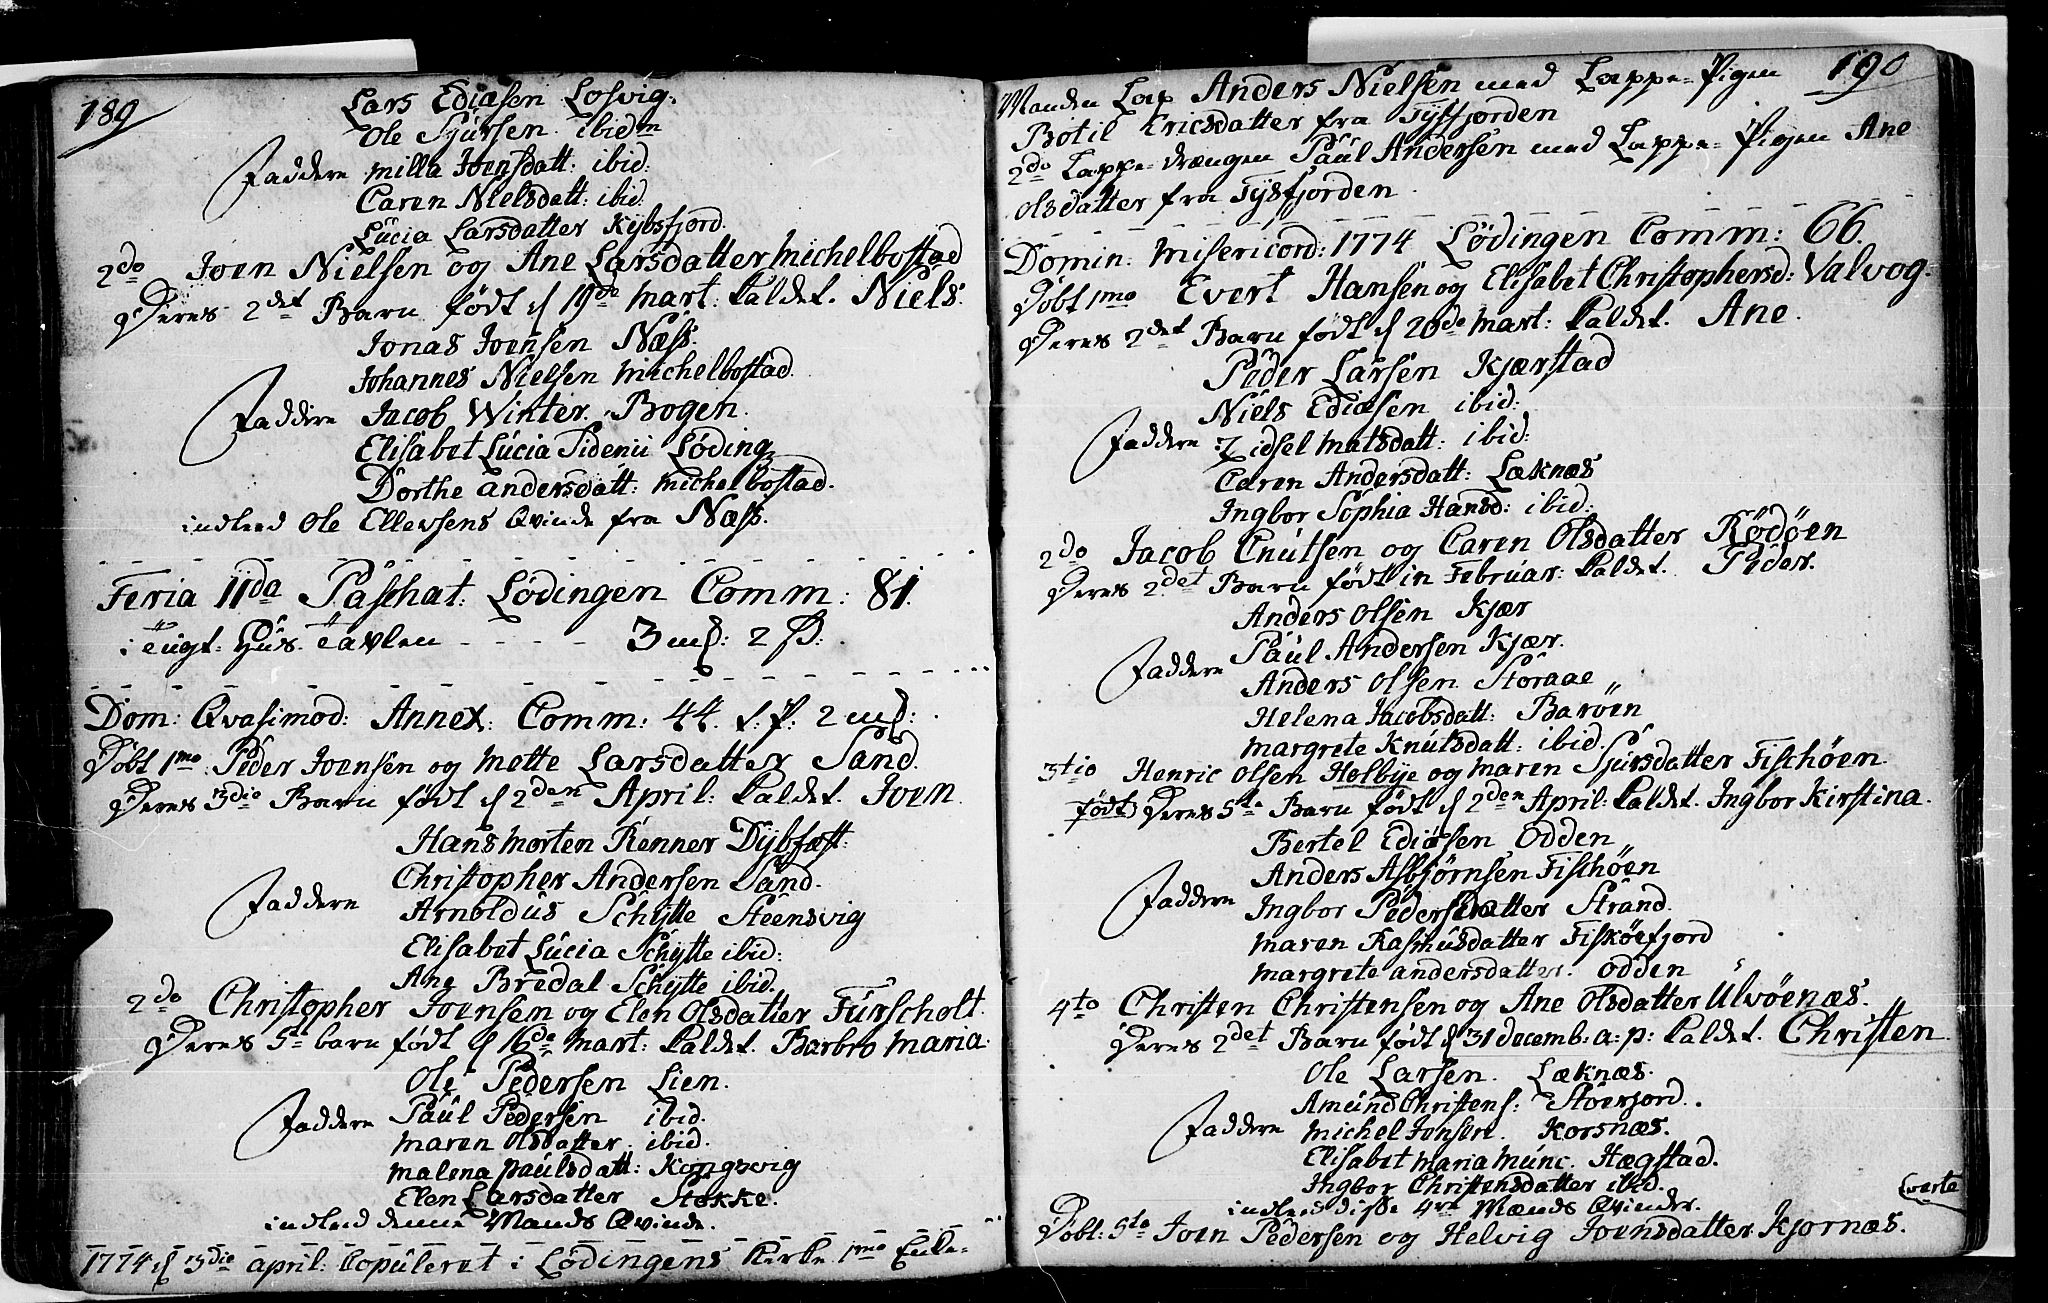 189
Lars Ediasen Losvig:
Ole Sjursen ibidm
Faddere Milla Joensdatt: ibid:
Caren Nielsdatt: ibid:
Lucia Larsdatter Kybsfjord.
2do Joen Nielsen og Ane Larsdatter Michelbostad
Deres 2det Barn født d 19de Mart: kaldet. Niels.
Jonas Joensen Næss.
Johannes Nielsen Michelbostad.
Faddere Jacob Winter. Bogen.
Elisabet Lucia Sidenii Løding
Dorthe Andersdatt: Michelbostad.
indleed Ole Ellevsens Qvinde fra Næss.
Feria IIda Paschat: Lødingen Comm: 81.
i Tugt-Hus-Tavlen - - - - 3 mk: 2 ß:
Dom: Qvasimod: Annex: Comm: 44. t. p: 2 mk:
Døbt 1mo Peder Joensen og Mette Larsdatter Sand.
Deres 3die Barn født d 2den April: kaldet. Joen.
Hans Morten Renner Dybfæst:
Christopher Andersen Sand.
Faddere Arnoldus Schytte Steensvig
Elisabet Lucia Schytte ibid:
Ane Bredal Schytte ibid.
2do Christopher Joensen og Elen Olsdatter Furscholt.
Deres 5t barn født d 16de Mart: kaldet. Barbro Maria.
Ole Pedersen Lien.
Faddere Paul Pedersen ibid.
Maren Olsdatter ibid.
Malena Paulsdatt: Kongsvig
Elen Larsdatter Stokke.
indleed denne Mands Qvinde.
1774 d 3die april: Copuleret i Lødingens Kirke 1mo Enke-
190
Manden Lap Anders Nielsen med Lappe-Pigen
Botil Ericsdatter fra Tysfjorden
2do Lappe-drængen Paul Andersen med Lappe-Pigen Ane
Olsdatter fra Tysfjorden.
Domin: Misericord: 1774 Lødingen Comm: 66.
Døbt 1mo Evert Hansen og Elisabet Christophersd: Valvog-
Deres 2det Barn født d 20de Mart: kaldet. Ane.
Peder Larsen Kjærstad
Niels Ediasen ibid:
Faddere Zidsel Matsdatt: ibid:
Caren Andersdatt: Læknæs
Ingbor Sophia Hansd: ibid:
2do Jacob Cnutsen og Caren Olsdatter Rødøen
Deres 2det Barn født in Februar: kaldet. Peder.
Anders Olsen Kjær
Paul Andersen Kjær.
Faddere Anders Olsen Storaae
Helena Jacobsdatt: Barøen
Margrete Knutsdatt: ibid.
3tio Henric Olsen Helbye og Maren Sjursdatter Fiskøen
født Deres 5te Barn født d 2den April: kaldet. Ingbor Kirstina.
Bertel Ediasen Odden
Anders Asbjørnsen Fiskøen
Faddere Ingbor Pedersdatter Strand.
Maren Rasmusdatter Fiskøefjord
Margrete Andersdatter. Odden
4to Christen Christensen og Ane Olsdatter Ulvøenæs.
Deres 2det Barn født d 31 decemb. a: p: kaldet. Christen.
Ole Larsen. Læknæs.
Amund Christens: Stoerjord.
Faddere Michel Jonsen. Korsnæs.
Elisabet Maria Munc. Hægstad.
Ingbor Christensdatter ibid.
indleed disse 4re Mænds Qvinder.
verte
Døbt: 5to Joen Pedersen og Helvig Joensdatter Kjornæs.